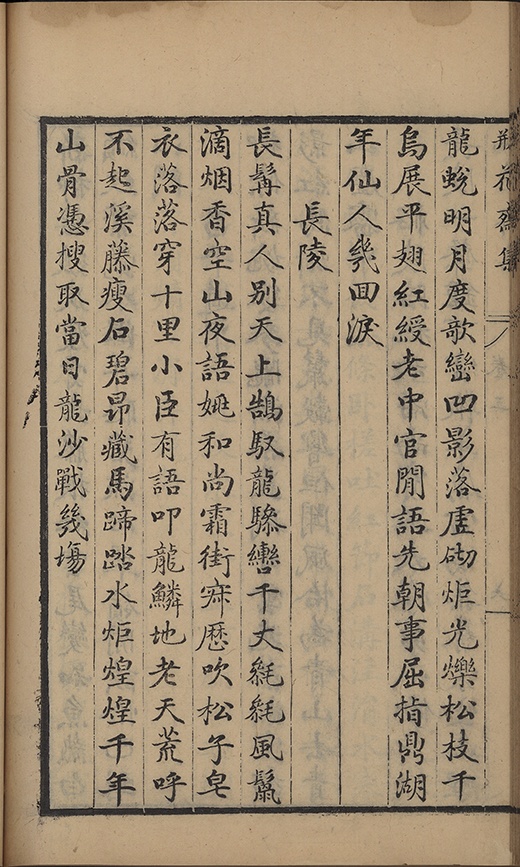 瓶花齋集 卷三
龍蛻明月度欹巒凹影落虛砌炬光爍松枝千
烏展平翅紅綬老中官閒語先朝事屈指鼎湖
年仙人幾回淚
長陵
長髯真人別天上鵠馭龍驂轡千丈毿毿風鬣
滴烟香空山夜語姚和尚霜街寂歷吹松子皂
衣落落穿十里小臣有語叩龍鱗地老天荒呼
不起溪藤瘦石碧昂藏馬蹄踏水炬煌煌千年
山骨憑搜取當日龍沙戰幾塲